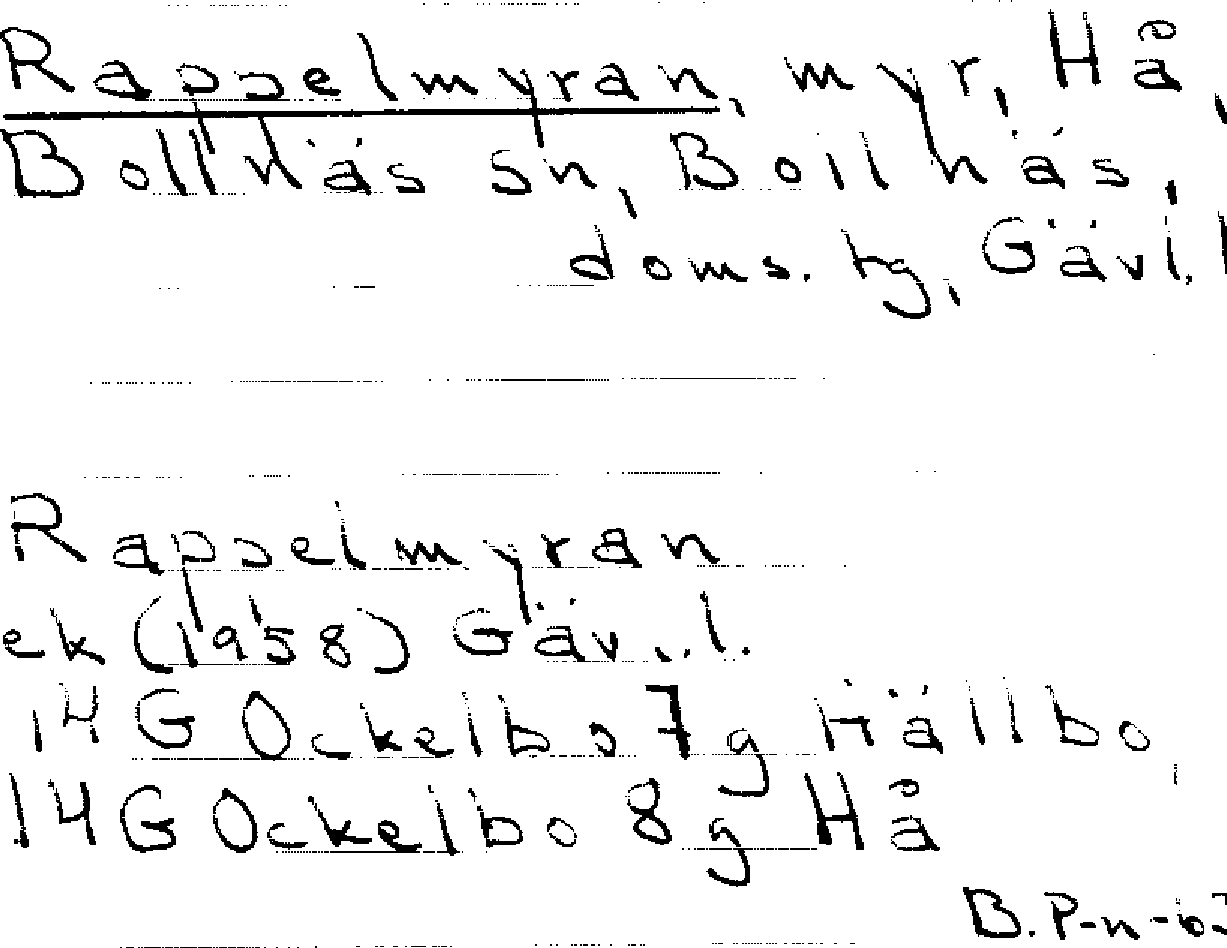 Rappelmyran, myr, Hå,
Bollnäs sn, Bollnäs,
doms. tg, Gävl. l
Rappelmyran
ek (1958) Gävl. l.
14G Ockelbo 7g Hällbo
14G Ockelbo 8g Hå
B. P-n-63